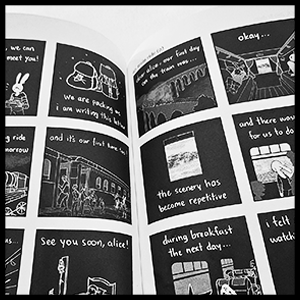 we can
meet you!
We are packing
I am writing this
ride
and it's our first time
See you soon, alice!
our first day
on the train was...
okay...
the scenery has
become repetitive
and there
for us to do
during breakfast
the next day...
I felt
watch